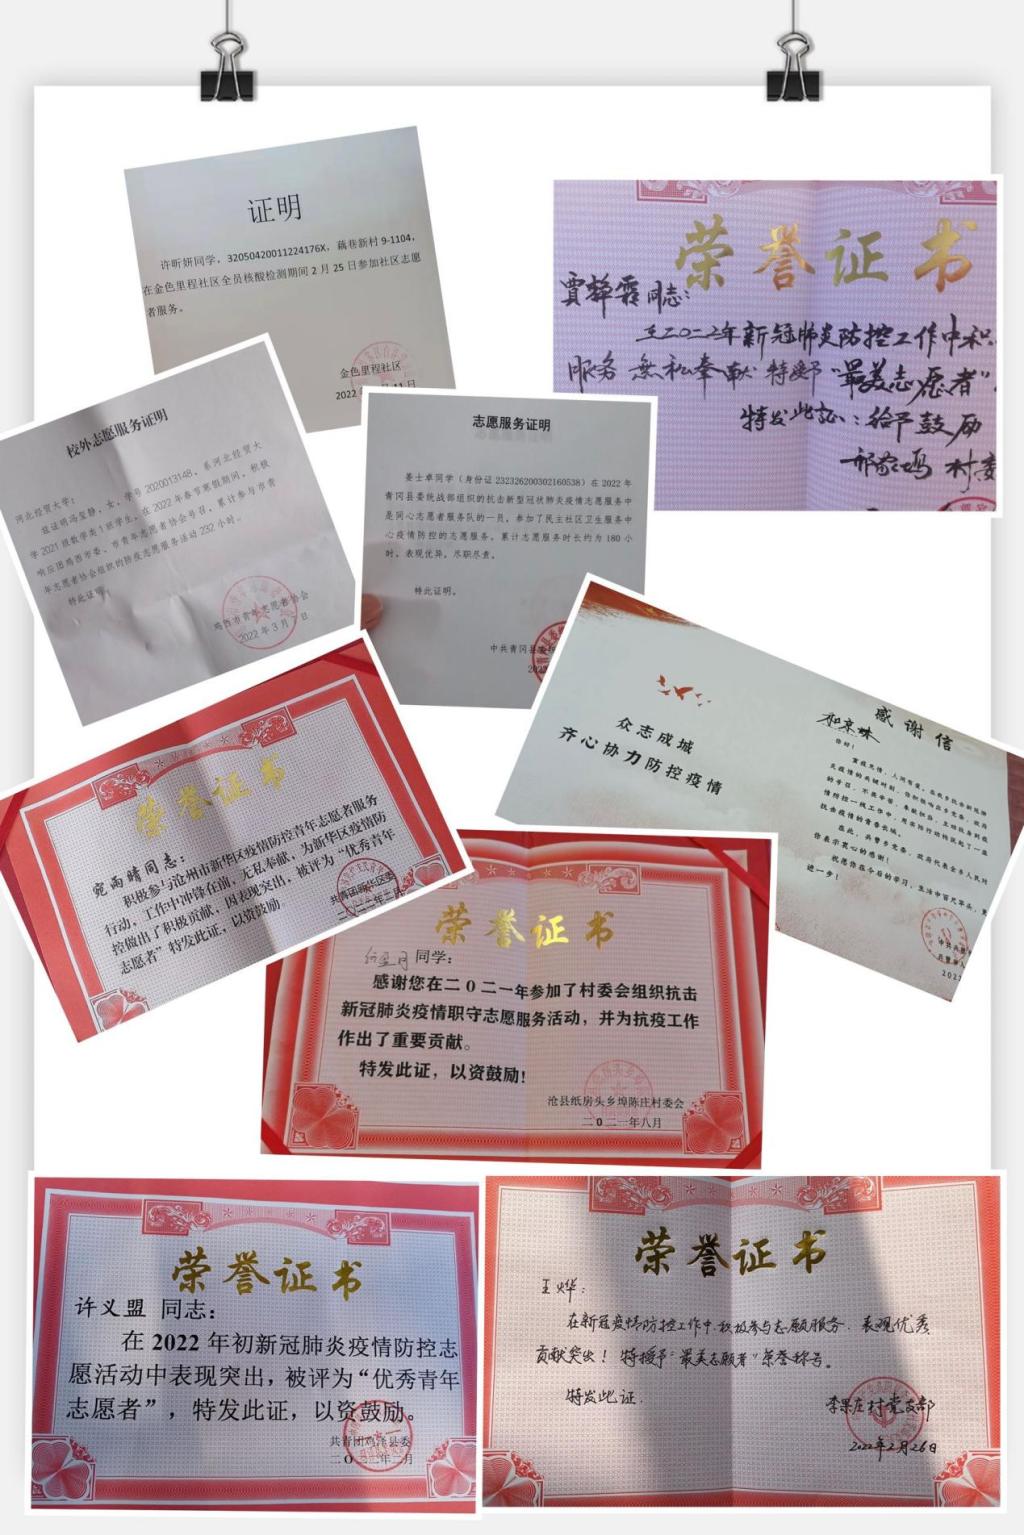 证明
许昕妍同学，32050420011224176X，藕巷新村 9-1104，
在金色里程社区全员核酸检测期间 2 月 25 日参加社区志愿
者服务。
金色里程社区
荣誉证书
同志：
在二0二二年新冠肺炎防控工作中积
服务 无私奉献 特授予“最美志愿者”
特发此证：给予鼓励
校外志愿服务证明
河北经贸大学：
兹证明冯玺静，女，学号 2020013148，系河北经贸大
学 2021 级数学类 1 班学生。在 2022 年春节寒假期间，积极
响应团鸡西市委、市青年志愿者协会号召，累计参与市青
年志愿者协会组织的防疫志愿服务活动 232 小时。
特此证明！
鸡西市青年志愿者协会
志愿服务证明
姜士卓同学（身份证 232326200302160538）在 2022 年
青冈县委统战部组织的抗击新型冠状肺炎疫情志愿服务中
是同心志愿者服务队的一员，参加了民主社区卫生服务中
心疫情防控的志愿服务。累计志愿服务时长约为 180 小
时。表现优异，尽职尽责。
特此证明。
中共青冈县委
众志成城
齐心协力防控疫情
感谢信
你好！
你表示衷心的感谢！
进一步！
荣誉证书
宛雨晴同志：
积极参与沧州市新华区疫情防控青年志愿者服务
行动，工作中冲锋在前，无私奉献，为新华区疫情防
控做出了积极贡献，因表现突出，被评为“优秀青年
志愿者”特发此证，以资鼓励
共青团新华区委
荣誉证书
同学：
感谢您在二0二一年参加了村委会组织抗击
新冠肺炎疫情职守志愿服务活动，并为抗疫工作
作出了重要贡献。
特发此证，以资鼓励！
沧县纸房头乡埠陈庄村委会
二0二一年八月
荣誉证书
许义盟 同志：
在 2022 年初新冠肺炎疫情防控志
愿活动中表现突出，被评为“优秀青年
志愿者”，特发此证，以资鼓励。
共青团鸡泽县委
二〇二二年二月
荣誉证书
王烨：
在新冠疫情防控工作中，积极参与志愿服务、表现优秀
贡献突出！特授予“最美志愿者”荣誉称号。
特发此证．
李果庄村党支部
2022年2月26日